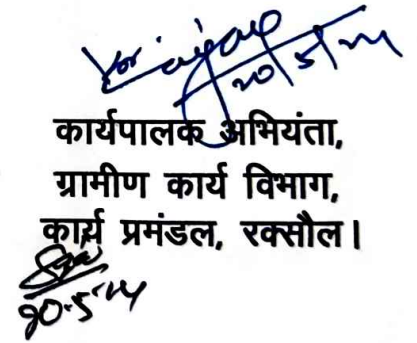 20/5/24
कार्यपालक अभियंता,
ग्रामीण कार्य विभाग,
कार्य प्रमंडल, रक्सौल।
20.5.24